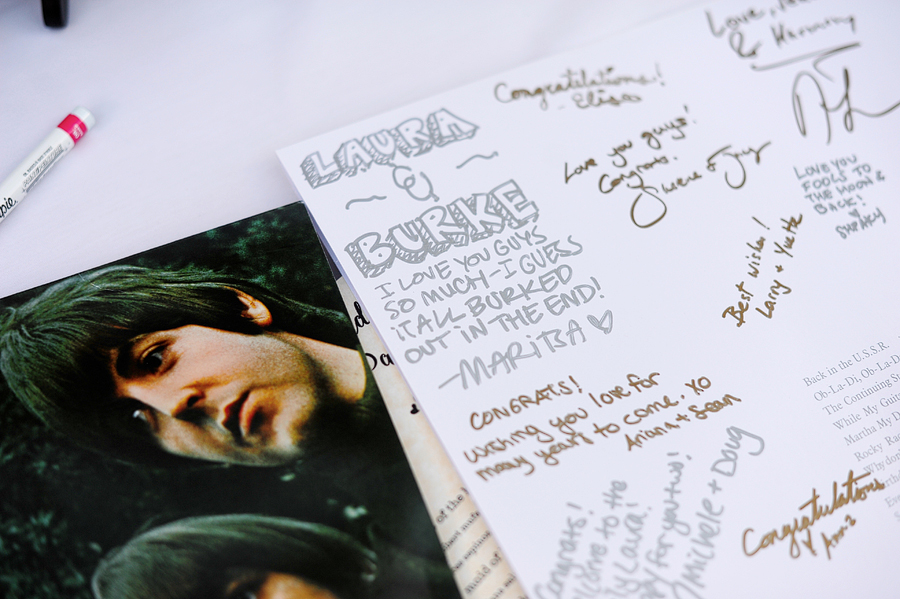 Love,
& Harmony
Congratulations!
- Elisa
LAURA
&
BURKE
I LOVE YOU GUYS
SO MUCH - I GUESS
iT ALL BURKED
OUT IN THE END!
- MARITSA ♡
Love you guys!
Congrats.
LOVE YOU
FOOLS TO
THE MOON &
BACK!
Best wishes!
Larry + Yvette
CONGRATS!
wishing you love for
many years to come. XO
Ariana + Sean
Congrats!
to the
Laura!
for you two!
Michele + Doug
Congratulations
Back in the U.S.S.R.
Ob-La-Di, Ob-La-
The Continuing St
While My Guita
Martha My D
Rocky Rac
Why don
of the